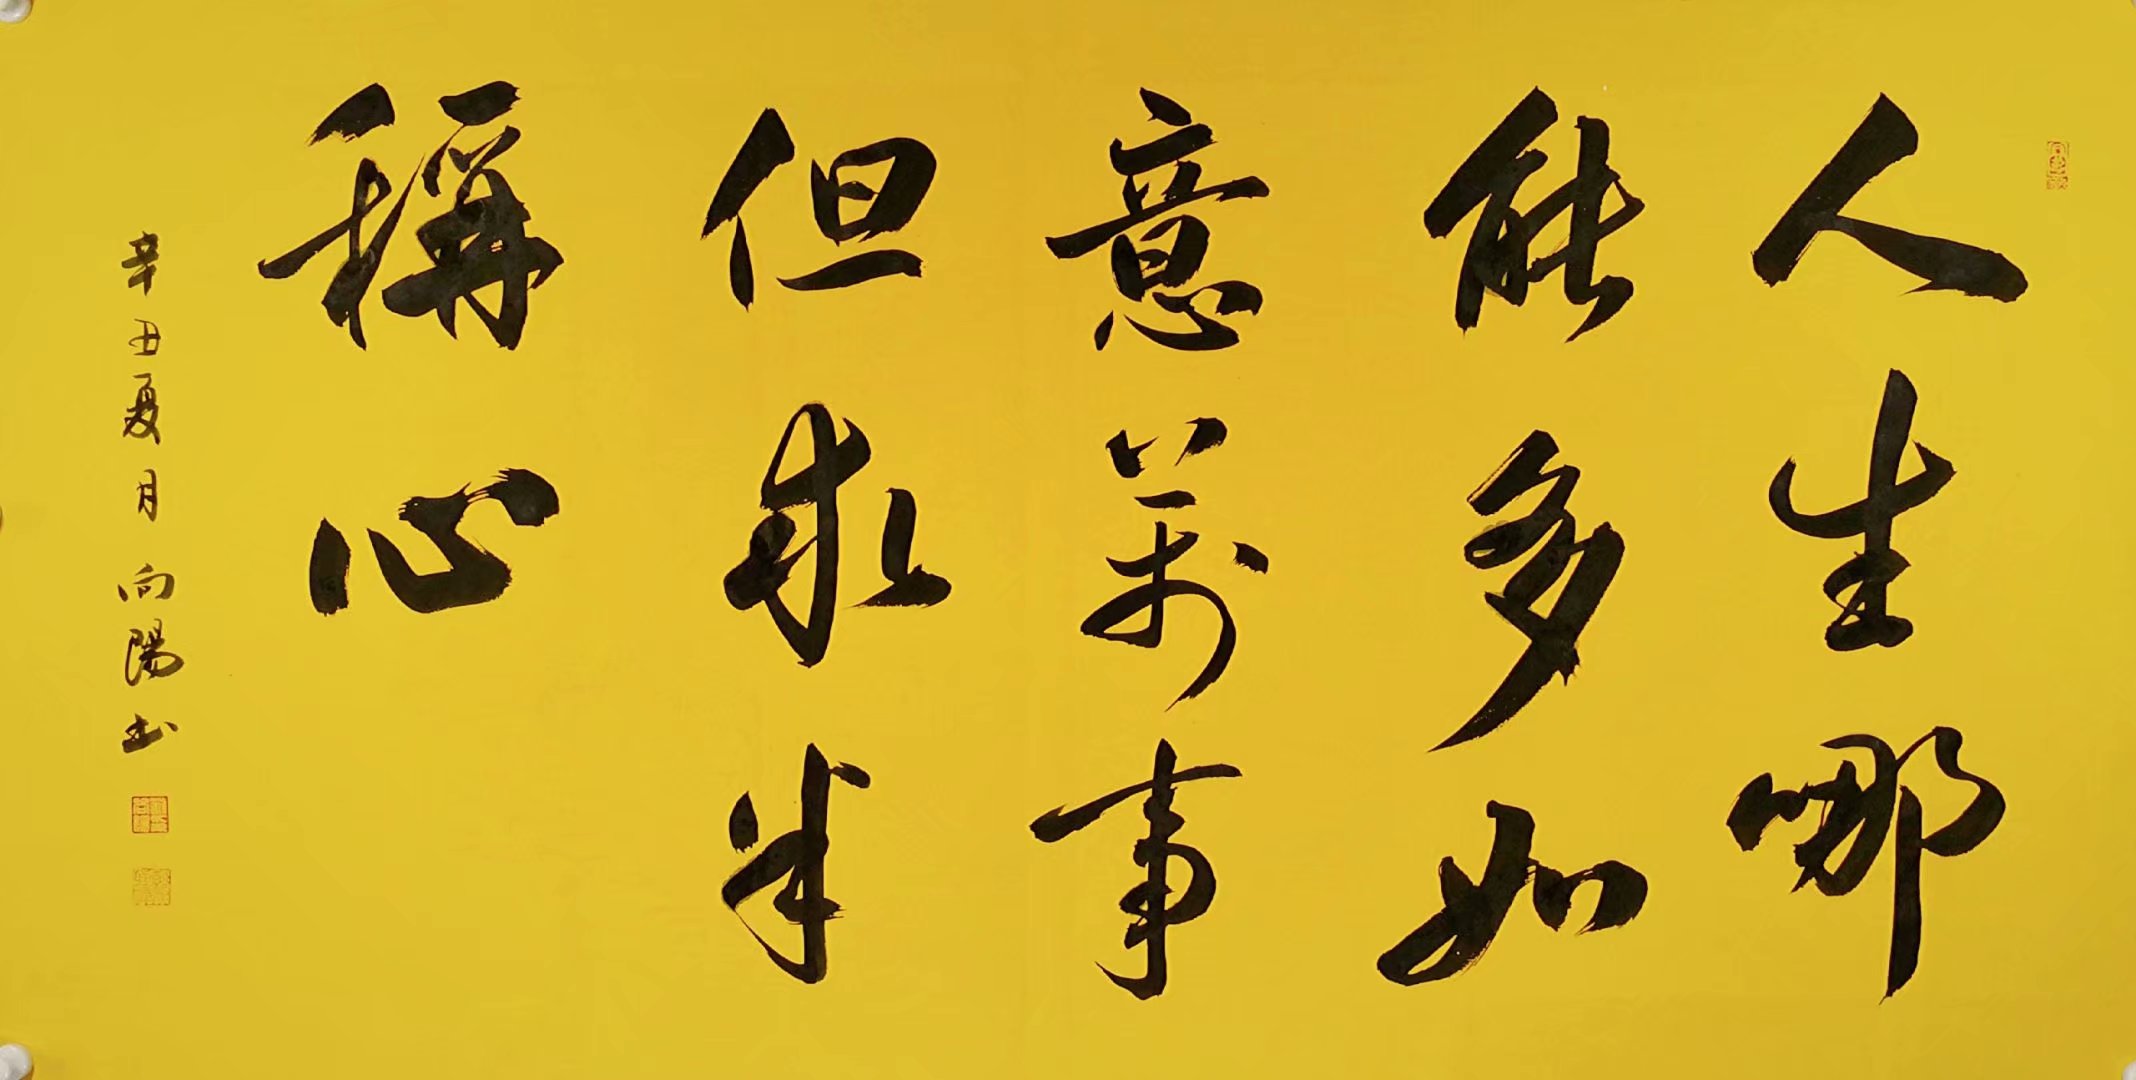 人生哪
能多如
意萬事
但求半
稱心
辛丑夏月向陽书